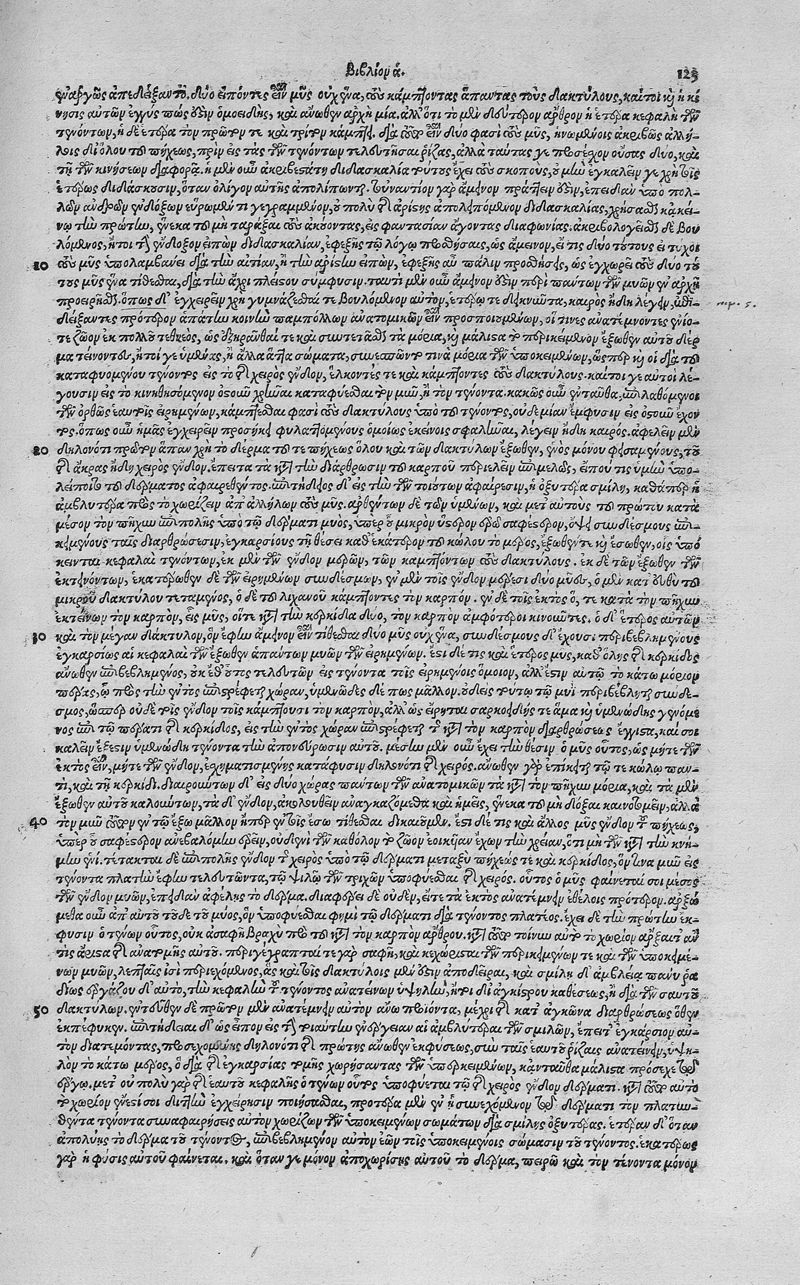 Βιβλίον α. 123
ἐναργῶς ἀπεδείξαντο. δύο εἰπόντες εἶναι μῦς οὐχ ἕνα, τοὺς κάμπτοντας ἅπαντας τοὺς δακτύλους, καίτοι καὶ ἡ κί
νησις αὐτῶν ἐγγύς πως ὁμοειδὴς, καὶ ἄνωθεν ἀρχὴ μία. ἀλλ' ὅτι τὸ μὲν δεύτερον ἄρθρον ἡ ἑτέρα κεφαλὴ τῶν
τενόντων, ἡ δὲ ἑτέρα τὸν πρῶτόν τε καὶ τρίτον κάμπτει. διὰ τοῦτο εἶναι δύο φασὶ τοὺς μῦς, ἡνωμένους ἀκριβῶς ἀλλή-
λοις δι' ὅλου τοῦ πήχεως, πρὶν εἰς τὰς τῶν τενόντων τελευτῆσαι ῥίζας, ἀλλὰ ταύτας γε προσέχον οὔσας δύο, καὶ
τῇ τῶν κινήσεων διαφορᾷ. ἡ μὲν οὖν ἀκριβεστάτη διδασκαλία τούτους ἔχει τοὺς σκοποὺς, ὁ μὲν ἐγκαλεῖν γε χρὴ τοῖς
ἑτέρως διδάσκουσιν, ὅταν ὀλίγον αὐτῆς ἀπολίπωνται. τοὐναντίον γὰρ ἄμεινον πράττειν ἐστὶν, ἐπειδὰν ὑπὸ πολ-
λῶν ἀνδρῶν ἐνδόξων εὕρωμέν τι γεγραμμένον, ὁ πολὺ τῆς ἀρίστης ἀπολειπόμενον διδασκαλίας, χρῆσθαι κἀκεί-
νῳ τὴν πρώτην, ἕνεκα τοῦ μὴ ταράξαι τοὺς ἀκούοντας, εἰς φαντασίαν ἄγοντας διαφωνίας. ἀκριβολογεῖσθαι δὲ βου
λόμενος, ἤτοι τὴν ἔνδοξον εἰπὼν διδασκαλίαν, ἐφεξῆς τῷ λόγῳ προσθήσεις, ὡς ἄμεινον, εἴ τις δύο τούτους εἰ τύχοι
10 τοὺς μῦς ὑπολαμβάνει διὰ τὴν αἰτίαν, ἢ τὴν ἀρίστην εἰπὼν, ἐφεξῆς αὖ πάλιν προσθήσεις, ὡς ἐγχωρεῖ τοὺς δύο τού
τους μῦς ἕνα τίθεσθαι, διὰ τὴν ἄχρι πλείστου σύμφυσιν. ταυτὶ μὲν οὖν ἄμεινον ἐστὶ περὶ πάντων τῶν μυῶν ἐν ἀρχῇ
προειρῆσθαι. ὅπως δ' ἐγχειρεῖν χρὴ γυμνάζεσθαί τε βουλόμενον αὐτὸν, ἑτέρῳ τε δεικνύντα, καιρὸς ἤδη λέγειν,
δείξαντες πρότερον ἀπάτην κοινὴν παμπόλλων ἀνατομικῶν εἶναι προσποιουμένων, οἵ τινες ἀνατέμνοντες ἐνίο-
τε ζῶον ἐκ πολλοῦ τεθνεὸς, ὡς ἐξηρᾶνθαί τε καὶ συντετᾶσθαι τὰ μόρια, καὶ μάλιστα τὸ περικείμενον ἔξωθεν αὐτοῦ δέρ
μα τείνοντων, ἤτοι γε ὑμένας, ἢ ἀλλ' ἄττα σώματα, συνεπισπῶν τινὰ μόρια τῶν ὑποκειμένων, ὥσπερ καὶ οἱ διὰ τοῦ
καταφυομένου τένοντος εἰς τὸ τῆς χειρὸς ἔνδον, ἕλκοντές τε καὶ κάμπτοντες τοὺς δακτύλους. καίτοι γε αὐτοὶ λέ-
γουσιν εἰς τὸ κινηθησόμενον ὀστοῦν χρῆναι καταφύεσθαι τὸν μῦν, ἢ τὸν τένοντα. κακῶς οὖν ἐνταῦθα, ἐπιλαθόμενοι
τῶν ὀρθῶς ἑαυτοῖς εἰρημένων, κάμπτεσθαι φασὶ τοὺς δακτύλους ὑπὸ τοῦ τένοντος, οὐδεμίαν ἔμφυσιν εἰς ὀστοῦν ἔχον
τος. ὅπως οὖν ἡμᾶς ἐγχειρεῖν προσήκει φυλαττομένους ὁμοίως ἐκείνοις σφαλῆναι, λέγειν ἤδη καιρός. ἀφελεῖν μὲν
20 δηλονότι πρῶτον ἅπαν χρὴ τὸ δέρμα τοῦ τε πήχεως ὅλου καὶ τῶν δακτύλων ἔξωθεν, ἑνὸς μόνου φεισαμένους, τοῦ
τῆς ἄκρας ἤδη χειρὸς ἔνδον, ἔπειτα τὰ κατὰ τὴν διάρθρωσιν τοῦ καρποῦ περιελεῖν ἐπιμελῶς, εἴ που τις ὑμὴν ὑπο-
λείποιτο τοῦ δέρματος ἀφαιρεθέντος. ἐπιτήδειος δ' εἰς τὴν τῶν τοιούτων ἀφαίρεσιν, ἡ ὀξυτέρα σμίλη, καθάπερ ἡ
ἀμβλυτέρα πρὸς τὸ χωρίζειν ἀπ' ἀλλήλων τοὺς μῦς. ἀρθέντων δὲ τῶν ὑμένων, καὶ μετ' αὐτοὺς τοῦ πρώτου κατὰ
μέσον τὸν πῆχυν ἐπιπολῆς ὑπὸ τῷ δέρματι μυὸς, ὑπὲρ οὗ μικρὸν ὕστερον ἐρῶ σαφέστερον, ὄψει συνδέσμους ἐπι-
κειμένους ταῖς διαρθρώσεσιν, ἐγκαρσίους τῇ θέσει καθ' ἑκάτερον τοῦ κώλου τὸ μέρος, ἔξωθέν τε καὶ ἔσωθεν, οἷς ὑπό
κεινται κεφαλαὶ τενόντων, ἐκ μὲν τῶν ἔνδον μερῶν, τῶν καμπτόντων τοὺς δακτύλους. ἐκ δὲ τῶν ἔξωθεν τῶν
ἐκτεινόντων. ἑκατέρωθεν δὲ τῶν εἰρημένων συνδέσμων, ἐν μὲν τοῖς ἔνδον μέρεσι δύο μύες, ὁ μὲν κατ' εὐθὺ τοῦ
μικροῦ δακτύλου τεταμένος, ὁ δὲ τοῦ λιχανοῦ κάμπτοντες τὸν καρπόν. ἐν δὲ τοῖς ἐκτὸς ὅ, τε κατὰ τὸν πῆχυν
ἐκτείνων τὸν καρπὸν, εἷς μῦς, οἵ τε κατὰ τὴν κερκίδα δύο, τὸν καρπὸν ἀμφότεροι κινοῦντες. ὁ δ' ἕτερος αὐτῶν
30 καὶ τὸν μέγαν δάκτυλον, ὃν ἔφην ἄμεινον εἶναι τίθεσθαι δύο μῦς οὐχ ἕνα, συνδέσμους δ' ἔχουσι περιβεβλημένους
ἐγκαρσίως αἱ κεφαλαὶ τῶν ἔξωθεν ἁπάντων μυῶν τῶν εἰρημένων. ἔστι δέ τις καὶ ἕτερος μῦς, καθ' ὅλης τῆς κερκίδος
ἄνωθεν ἐπιβεβλημένος, οὐκ ἔθ' οὗτος τελευτῶν εἰς τένοντα τοῖς εἰρημένοις ὅμοιον, ἀλλ' ἔστιν αὐτῷ τὸ κάτω μόριον
πέρας, ᾧ πρὸς τὴν ἐντὸς ἐπιστρέφεται χώραν, ὑμενῶδες δέ πως μᾶλλον. οὐδεὶς τούτῳ τῷ μυῒ περιβέβληται σύνδε-
σμος, ὥσπερ οὐδὲ τοῖς ἔνδον τοῖς κάμπτουσι τὸν καρπὸν, ἀλλ' ὡς εἴρηται σαρκοειδής τε ἅμα καὶ ὑμενώδης γενόμε
νος ἐπὶ τῷ πέρατι τῆς κερκίδος, εἰς τὴν ἐντὸς χώραν ἐπιστρέφεται τῆς κατὰ τὸν καρπὸν διαρθρώσεως ἔγγιστα, καί σοι
καλεῖν ἔξεστιν ὑμενώδη τένοντα τὴν ἀπονεύρωσιν αὐτοῦ. μέσην μὲν οὖν ἔχει τὴν θέσιν ὁ μῦς οὗτος, ὡς μήτε τῶν
ἐκτὸς εἶναι, μήτε τῶν ἔνδον, ἐσχηματισμένης κατάφυσιν δηλονότι τῆς χειρός. ἄνωθεν γὰρ ἐπίκειται τῷ τε κώλῳ παν-
τὶ, καὶ τῇ κερκίδι. διαιρούντων δ' εἰς δύο χώρας πάντων τῶν ἀνατομικῶν τὰ κατὰ τὸν πῆχυν μόρια, καὶ τὰ μὲν
ἔξωθεν αὐτοῦ καλούντων, τὰ δ' ἔνδον, ἀκολουθεῖν ἀναγκαζόμεθα καὶ ἡμεῖς, ἕνεκα τοῦ μὴ δόξαι καινοτομεῖν, ἀλλὰ
40 τὸν μῦν τοῦτον ἐν τῷ ἔξω μᾶλλον ἤπερ ἐν τοῖς ἔσω τίθεσθαι δίκαιον. ἔστι δέ τις καὶ ἄλλος μῦς ἔνδον τοῦ πήχεως,
ὑπὲρ οὗ σαφέστερον ἀνεβαλόμην ἐρεῖν, οὐδενὶ τῶν καθόλου τοῦ ζώου ἐοικυῖαν ἔχων τὴν χρείαν, ὅτι μὴ τῶν κατὰ τὴν κνή-
μην ἑνί. τέτακται δὲ ἐπιπολῆς ἔνδον τῆς χειρὸς ὑπὸ τῷ δέρματι μεταξὺ πήχεώς τε καὶ κερκίδος, ὃν ἕνα μῦν εἰς
τένοντα πλατὺν ἔφην τελευτῶντα, τῷ ψιλῷ τῶν τριχῶν ὑποφύεσθαι τῆς χειρός. οὗτος ὁ μῦς φαίνεταί σοι μέσος
τῶν ἔνδον μυῶν, ἐπειδὰν ἀφέλῃς τὸ δέρμα. διαφέρει δὲ οὐδὲν, εἴτε τὰ ἐκτὸς ἀνατέμνειν ἐθέλοις πρότερον. ἀρξώ
μεθα οὖν ἀπ' αὐτοῦ τοῦδε τοῦ μυὸς, ὃν ὑποφύεσθαι φημὶ τῷ δέρματι διὰ τένοντος πλατέος. ἔχει δὲ τὴν πρώτην ἔκ-
φυσιν ὁ τένων οὗτος, οὐκ ἀσαφῆ βραχὺ πρὸ τοῦ κατὰ τὸν καρπὸν ἄρθρου. κατὰ τοῦτο τοίνυν αὐτὸ τὸ χωρίον ἄρξαιτ' ἄν
τις ἄριστα τῆς ἀνατομῆς αὐτοῦ. περιγέγραπταί τε γὰρ σαφῆ, καὶ κεχώρισται τῶν περικειμένων τε καὶ ὑποκειμέ-
νων μυῶν, λεπτοῖς ἰσὶ περιεχόμενος, ἃς καὶ τοῖς δακτύλοις μὲν ἐστὶν ἀποδεῖραι, καὶ σμίλῃ δ' ἀμβλείᾳ πάνυ ῥᾳ
δίως ἐργάζου δ' αὐτὸ, τὴν κεφαλὴν τοῦ τένοντος ἀνατείνων ὑψηλὴν, ἤτοι δι' ἀγκίστρου καθέσεως, ἢ διὰ τῶν σαυτοῦ
50 δακτύλων. ἐντεῦθεν δὲ πρῶτον μὲν ἀνατέμνειν αὐτὸν ἄνω προϊόντα, μέχρι τῆς κατ' ἀγκῶνα διαρθρώσεως ὅθεν
ἐκπέφυκεν. ἐπιτήδειαι δ' ὡς εἶπον εἰς τὴν τοιαύτην ἐνέργειαν αἱ ἀμβλύτεραι τῶν σμιλῶν, ἔπειτ' ἐγκάρσιον αὐ-
τὸν διατέμοντας, προσεχομένης δηλονότι τῆς πρώτης ἄνωθεν ἐκφύσεως, σὺν ταῖς ἑαυτοῦ ῥίζαις ἀνατείνειν, ὑψη-
λὸν τὸ κάτω μέρος, ὃ διὰ τῆς ἐγκαρσίας τομῆς χωρήσαντας τῶν ὑπερκειμένων, κἀνταῦθα μάλιστα πρόσεχε τῷ
ἔργῳ. μετ' οὐ πολὺ γὰρ τῆς ἑαυτοῦ κεφαλῆς ὁ τένων οὗτος ὑποφύεται τῷ τῆς χειρὸς ἔνδον δέρματι. κατὰ τοῦτο αὐτὸ
τὸ χωρίον ἔνεστί σοι διττὴν ἐγχείρησιν ποιήσασθαι, προτέραν μὲν ἐν ᾗ συνεχόμενον τῷ δέρματι τὸν πλατυν-
θέντα τένοντα συναφαιρήσεις αὐτὸν χωρίζων τῶν ὑποκειμένων σωμάτων διὰ σμίλης ὀξυτέρας. ἑτέραν δ' ὅταν
ἀπολύῃς τὸ δέρμα τοῦ τένοντος, ἐπιβεβλημένον αὐτὸν ἐῶν τοῖς ὑποκειμένοις σώμασιν τοῦ τένοντος. ἑκατέρως
γὰρ ἡ φύσις αὐτοῦ φαίνεται. καὶ ὅταν γε μόνον ἀποχωρίσῃς αὐτοῦ τὸ δέρμα, πειρῶ καὶ τὸν τένοντα μόνον